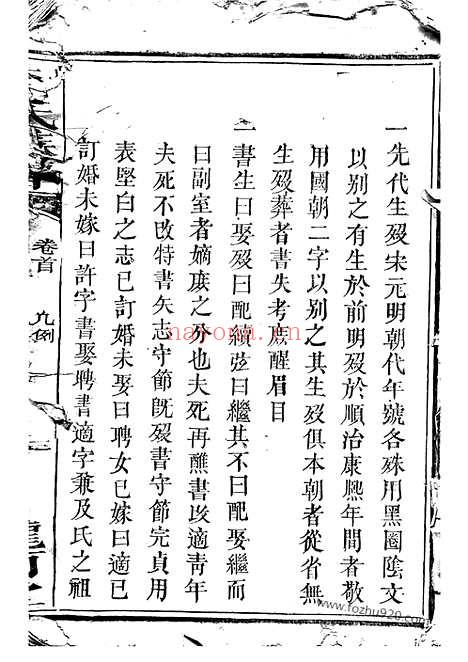 一先代生歿宋元明朝代年號各殊用黑圈陰文
以別之有生於前明歿於順治康熈年間者敬
用國朝二字以別之其生歿俱本朝者從省無
生歿葬者書失考庶醒眉目
一書生曰娶歿曰配續弦曰繼其不曰配娶繼而
曰副室者嫡庶之分也夫死再醮書改適靑年
夫死不改特書矢志守節旣歿書守節完貞用
表堅白之志已訂婚未娶曰聘女已嫁曰適已
訂婚未嫁曰許字書娶聘書適字兼及氏之祖
卷首
凡例
nayona.cn
www.fozhu920.com